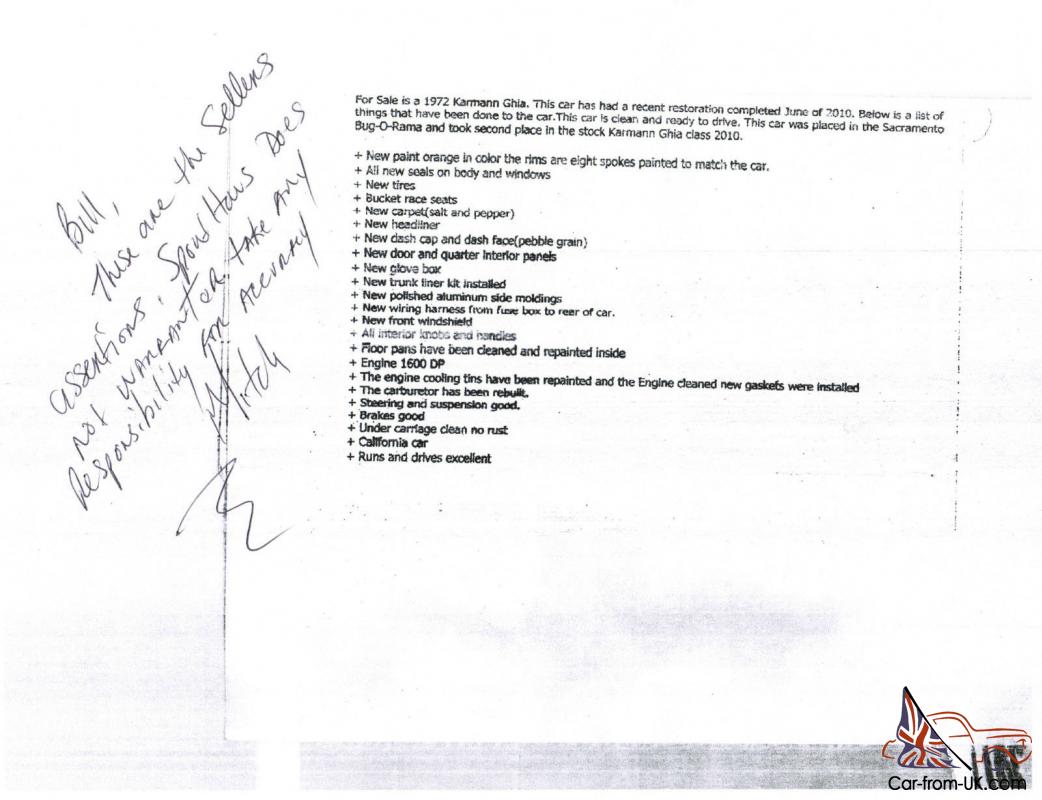 Bill,
These are the Sellers
assertions. SportHaus Does
not warrant or take Any
Responsibility For Accuracy
Mitch
For Sale is a 1972 Karmann Ghia. This car has had a recent restoration completed June of 2010. Below is a list of
things that have been done to the car.This car is clean and ready to drive. This car was placed in the Sacramento
Bug-O-Rama and took second place in the stock Karmann Ghia class 2010.
+ New paint orange in color the rims are eight spokes painted to match the car.
+ All new seals on body and windows
+ New tires
+ Bucket race seats
+ New carpet(salt and pepper)
+ New headliner
+ New dash cap and dash face(pebble grain)
+ New door and quarter interior panels
+ New glove box
+ New trunk liner kit installed
+ New polished aluminum side moldings
+ New wiring harness from fuse box to rear of car.
+ New front windshield
+ All interior knobs and handles
+ Floor pans have been cleaned and repainted inside
+ Engine 1600 DP
+ The engine cooling tins have been repainted and the Engine cleaned new gaskets were installed
+ The carburetor has been rebuilt.
+ Steering and suspension good.
+ Brakes good
+ Under carriage clean no rust
+ California car
+ Runs and drives excellent
Car-from-UK.com